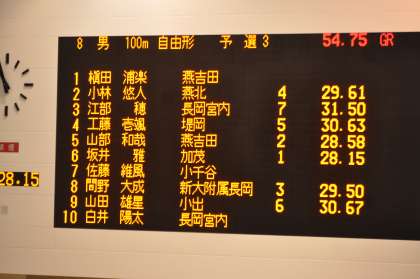 8 男 100m 自由形 予 選 3 54.75 GR
1 槇田 浦楽 燕吉田
2 小林 悠人 燕北 4 29.61
3 江部 穂 長岡宮内 7 31.50
4 工藤 壱颯 堤岡 5 30.63
5 山部 和哉 燕吉田 2 28.58
6 坂井 雅 加茂 1 28.15
7 佐藤 維風 小千谷
8 間野 大成 新大附属長岡 3 29.50
9 山田 雄星 小出 6 30.67
10 白井 陽太 長岡宮内
28.15